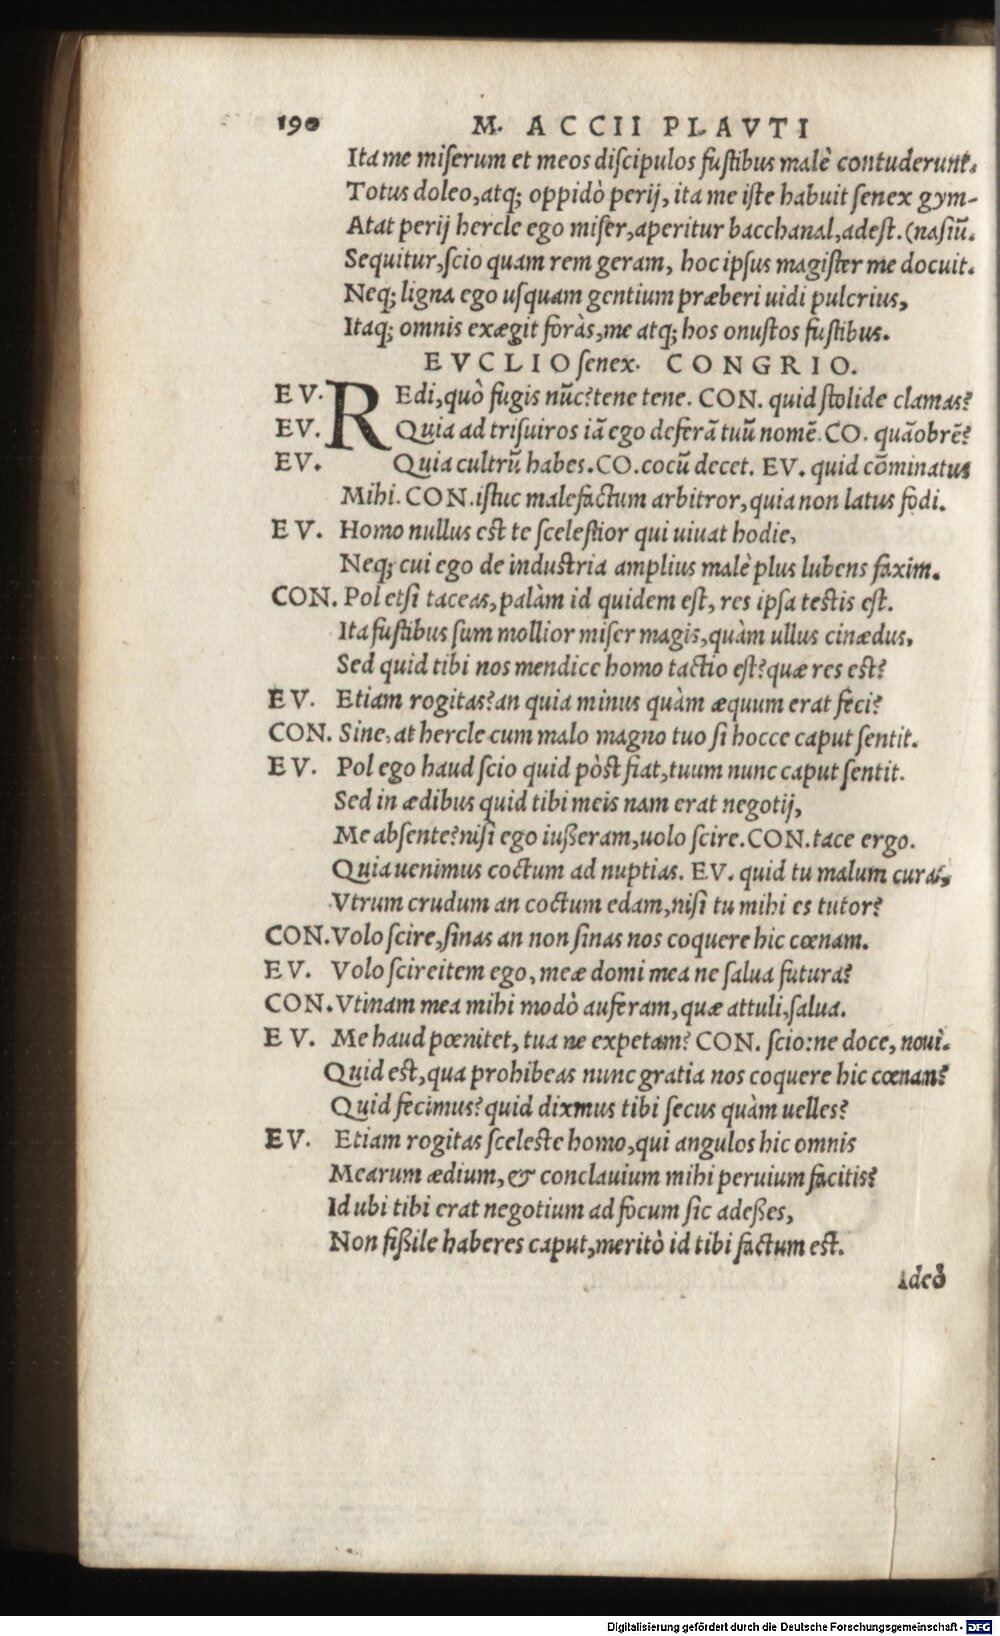 190 M. ACCII PLAVTI
Ita me miſerum et meos diſcipulos fuſtibus malè contuderunt.
Totus doleo, atq; oppidò perij, ita me iſte habuit ſenex gym-
Atat perij hercle ego miſer, aperitur bacchanal, adeſt. (naſiũ.
Sequitur, ſcio quam rem geram, hoc ipſus magiſter me docuit.
Neq; ligna ego uſquam gentium præberi uidi pulcrius,
Itaq; omnis exægit foràs, me atq; hos onuſtos fuſtibus.
EVCLIO ſenex. CONGRIO.
EV. REdi, quò fugis nũc? tene tene. CON. quid ſtolide clamas?
EV. Quia ad triſuiros iã ego deferã tuũ nomẽ. CO. quãobrẽ?
EV. Quia cultrũ habes. CO. cocũ decet. EV. quid cõminatus
Mihi. CON. iſtuc malefactum arbitror, quia non latus fodi.
EV. Homo nullus eſt te ſceleſtior qui uiuat hodie,
Neq; cui ego de induſtria amplius malè plus lubens faxim.
CON. Pol etſi taceas, palàm id quidem eſt, res ipſa teſtis eſt.
Ita fuſtibus ſum mollior miſer magis, quàm ullus cinædus.
Sed quid tibi nos mendice homo tactio eſt? quæ res eſt?
EV. Etiam rogitas? an quia minus quàm æquum erat feci?
CON. Sine, at hercle cum malo magno tuo ſi hocce caput ſentit.
EV. Pol ego haud ſcio quid pòſt fiat, tuum nunc caput ſentit.
Sed in ædibus quid tibi meis nam erat negotij,
Me abſente? niſi ego iußeram, uolo ſcire. CON. tace ergo.
Quia uenimus coctum ad nuptias. EV. quid tu malum curas,
Vtrum crudum an coctum edam, niſi tu mihi es tutor?
CON. Volo ſcire, ſinas an non ſinas nos coquere hic cœnam.
EV. Volo ſcire item ego, meæ domi mea ne ſalua futura?
CON. Vtinam mea mihi modò auferam, quæ attuli, ſalua.
EV. Me haud pœnitet, tua ne expetam? CON. ſcio: ne doce, noui.
Quid eſt, qua prohibeas nunc gratia nos coquere hic cœnam?
Quid fecimus? quid diximus tibi ſecus quàm uelles?
EV. Etiam rogitas ſceleſte homo, qui angulos hic omnis
Mearum ædium, & conclauium mihi peruium facitis?
Id ubi tibi erat negotium ad focum ſic adeßes,
Non fißile haberes caput, meritò id tibi factum eſt.
Adeò
Digitalisierung gefördert durch die Deutsche Forschungsgemeinschaft - DFG